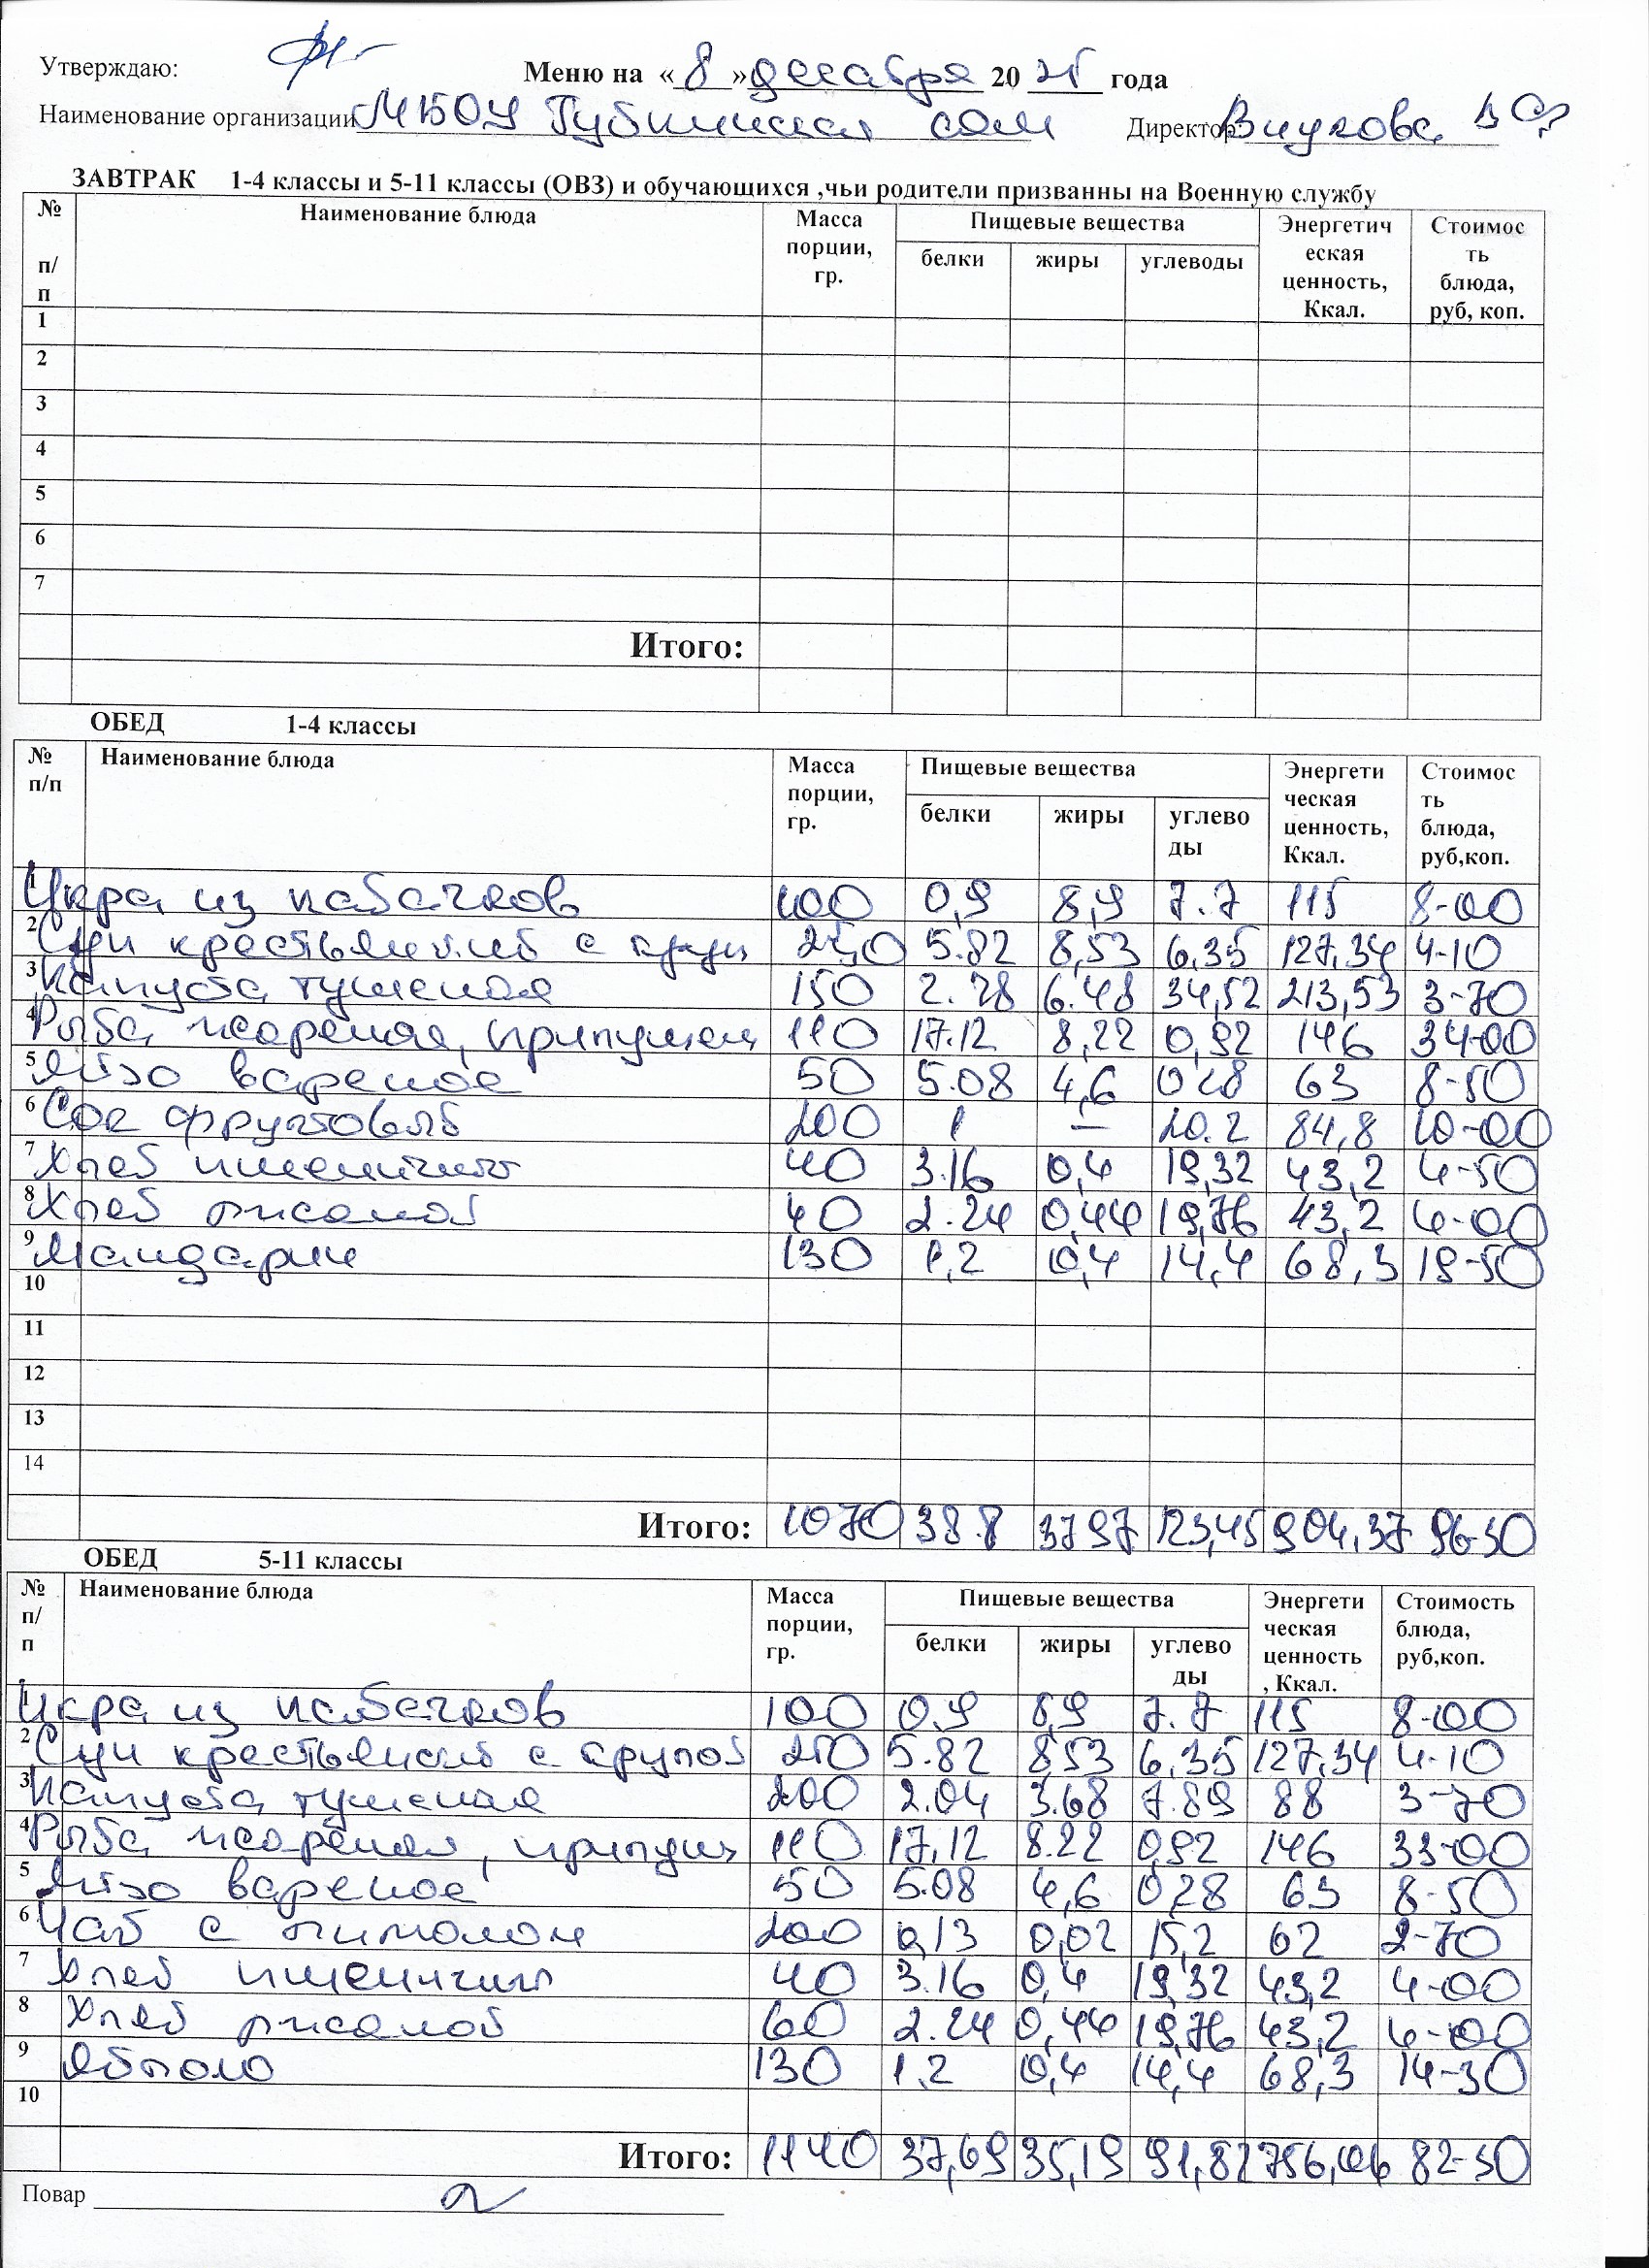 Утверждаю:
Меню на «8» декабря 2025 года
Наименование организации МБОУ Губкинская сош Директор Внукова
ЗАВТРАК 1-4 классы и 5-11 классы (ОВЗ) и обучающихся ,чьи родители призванны на Военную службу
№ п/п Наименование блюда Масса порции, гр. Пищевые вещества Энергетическая ценность, Ккал. Стоимость блюда, руб, коп.
белки жиры углеводы
1
2
3
4
5
6
7
Итого:
ОБЕД 1-4 классы
№ п/п Наименование блюда Масса порции, гр. Пищевые вещества Энергетическая ценность, Ккал. Стоимость блюда, руб,коп.
белки жиры углеводы
1 Икра из кабачков 100 0,9 8,9 7.7 115 8-00
2 Суп крестьянский с круп 250 5.82 8,53 6,35 127,34 4-10
3 Капуста тушеная 150 2.28 6.48 34,52 213,53 3-70
4 Рыба жареная, припущен 110 17.12 8,22 0,92 146 34-00
5 Яйцо вареное 50 5.08 4,6 028 63 8-50
6 Сок фруктовый 200 1 — 20.2 84,8 10-00
7 Хлеб пшеничный 40 3.16 0,4 19,32 43,2 4-50
8 Хлеб ржаной 40 2.24 0,44 19,76 43,2 4-00
9 Мандарин 130 1,2 0,4 14,4 68,3 19-50
10
11
12
13
14
Итого: 1070 38.8 3797 123,45 904,37 96-30
ОБЕД 5-11 классы
№ п/п Наименование блюда Масса порции, гр. Пищевые вещества Энергетическая ценность, Ккал. Стоимость блюда, руб,коп.
белки жиры углеводы
1 Икра из кабачков 100 0.9 8,9 7.7 115 8-00
2 Суп крестьянский с крупой 250 5.82 853 6,35 127,34 4-10
3 Капуста тушеная 200 2.04 3.68 7.89 88 3-70
4 Рыба жареная, припущ 110 17,12 8.22 0,92 146 33-00
5 Яйцо вареное 50 5.08 4,6 028 63 8-50
6 Чай с лимоном 200 0,13 0,02 15,2 62 2-70
7 Хлеб пшеничный 40 3.16 0,4 19,32 43,2 4-00
8 Хлеб ржаной 60 2.24 0,44 19,76 43,2 4-00
9 Яблоко 130 1.2 0,4 14,4 68,3 14-30
10
Итого: 1140 37,69 35,19 91,82 756,06 82-30
Повар